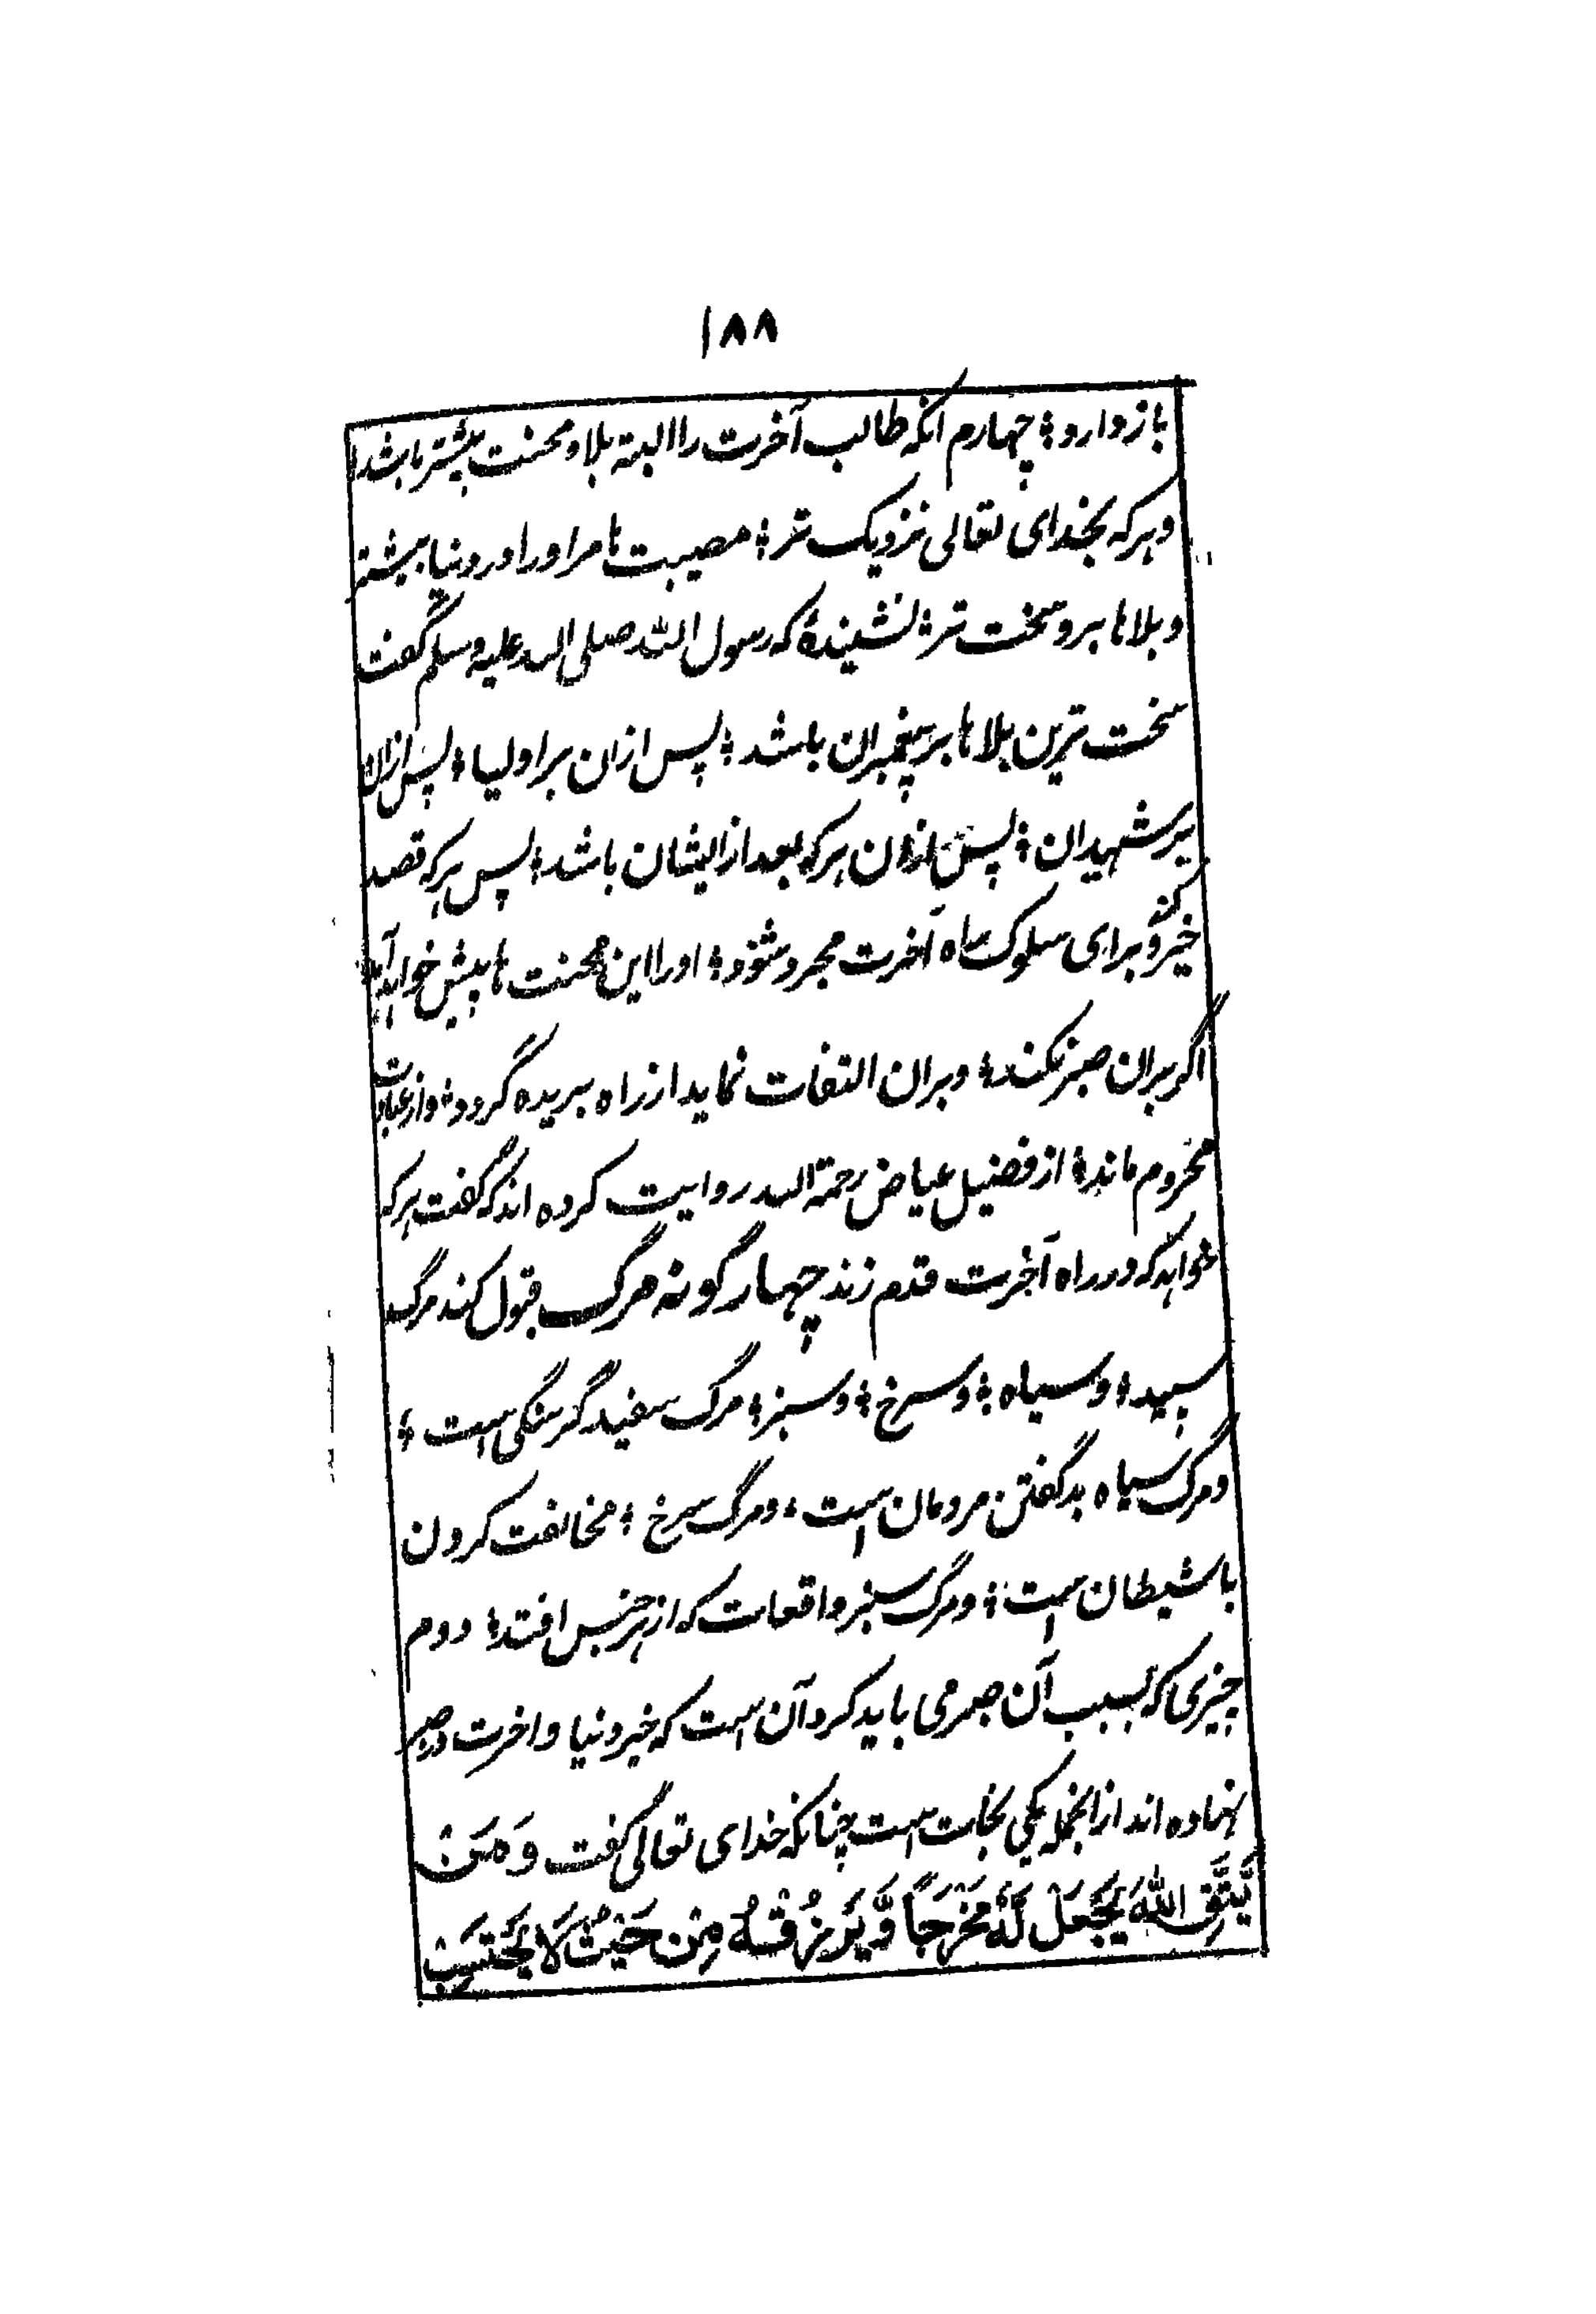 ۱۸۸
باز دارد؛ چهارم آنکه طالب آخرت را البته بلا و محنت بیشتر باشد
و هرکه بخدای تعالی نزدیک تر؛ مصیبت ها مر او را در دنیا بیشتر
و بلاها برو سخت تر؛ نشنیدهٔ که رسول الله صلی الله علیه وسلم گفت
سخت ترین بلاها بر پیغمبران باشد؛ پس ازان بر اولیا؛ پس ازان
بر شهیدان؛ پس ازان هرکه بعد از ایشان باشد؛ پس هرکه قصد
خیر کند و برای سلوک راه آخرت مجرد شود؛ او را این محنت ها پیش خواهد آمد
اگر بران صبر نکند؛ و بران التفات نماید از راه بریده گردد؛ و از عبادت
محروم ماند؛ از فضیل عیاض رحمة الله روایت کرده اند که گفت هرکه
خواهد که در راه آخرت قدم زند چهار گونه مرگ قبول کند مرگ
سپید؛ و سیاه؛ و سرخ؛ و سبز؛ مرگ سفید گرسنگی است؛
و مرگ سیاه بد گفتن مردمان است؛ و مرگ سرخ؛ مخالفت کردن
با شیطان است؛ و مرگ سبز واقعات که از هر جنس افتد؛ دوم
چیزی که بسبب آن صبر می باید کرد آن است که خیر دنیا و اخرت در صبر
نهاده اند از انجمله یکی نجات است چنانکه خدای تعالی گفت وَمَنْ
یَّتَّقِ اللهَ یَجْعَلْ لَهٗ مَخْرَجًا وَّیَرْزُقْهُ مِنْ حَیْثُ لَا یَحْتَسِبْ